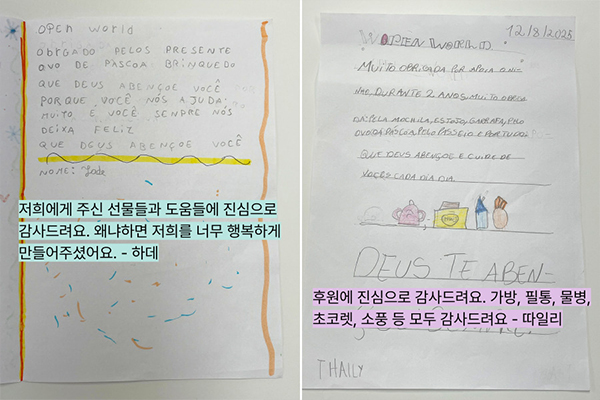 OPEN WORLD
OBRGADO PELOS PRESENTE
OVO DE PASCOA BRINQUEDO
QUE DEUS ABENÇOE VOCÊ
PORQUE VOCÊ NÓS AJUDA:
MUITO E VOCÊ SENPRE NÓS
DEIXA FELIZ
QUE DEUS ABENÇOE VOCÊ
NOME: Jade
저희에게 주신 선물들과 도움들에 진심으로
감사드려요. 왜냐하면 저희를 너무 행복하게
만들어주셨어요. - 하데
12/8/2025
WOPEN WORLD
MUITO OBRIGADA POR APOIA O NI=
NHO, DURANTE 2 ANOS. MUITO OBRIGA
DA PELA MOCHILA, ESTOJO, GARRAFA, PELO
OVO DA PÁSCOA, PELO PASSEIO E POR TUDO
QUE DEUS ABENÇOE E CUIDE DE
VOCÊS CADA DIA DIA
DEUS TE ABEN=
후원에 진심으로 감사드려요. 가방, 필통, 물병,
초코렛, 소풍 등 모두 감사드려요 - 따일리
THAILY